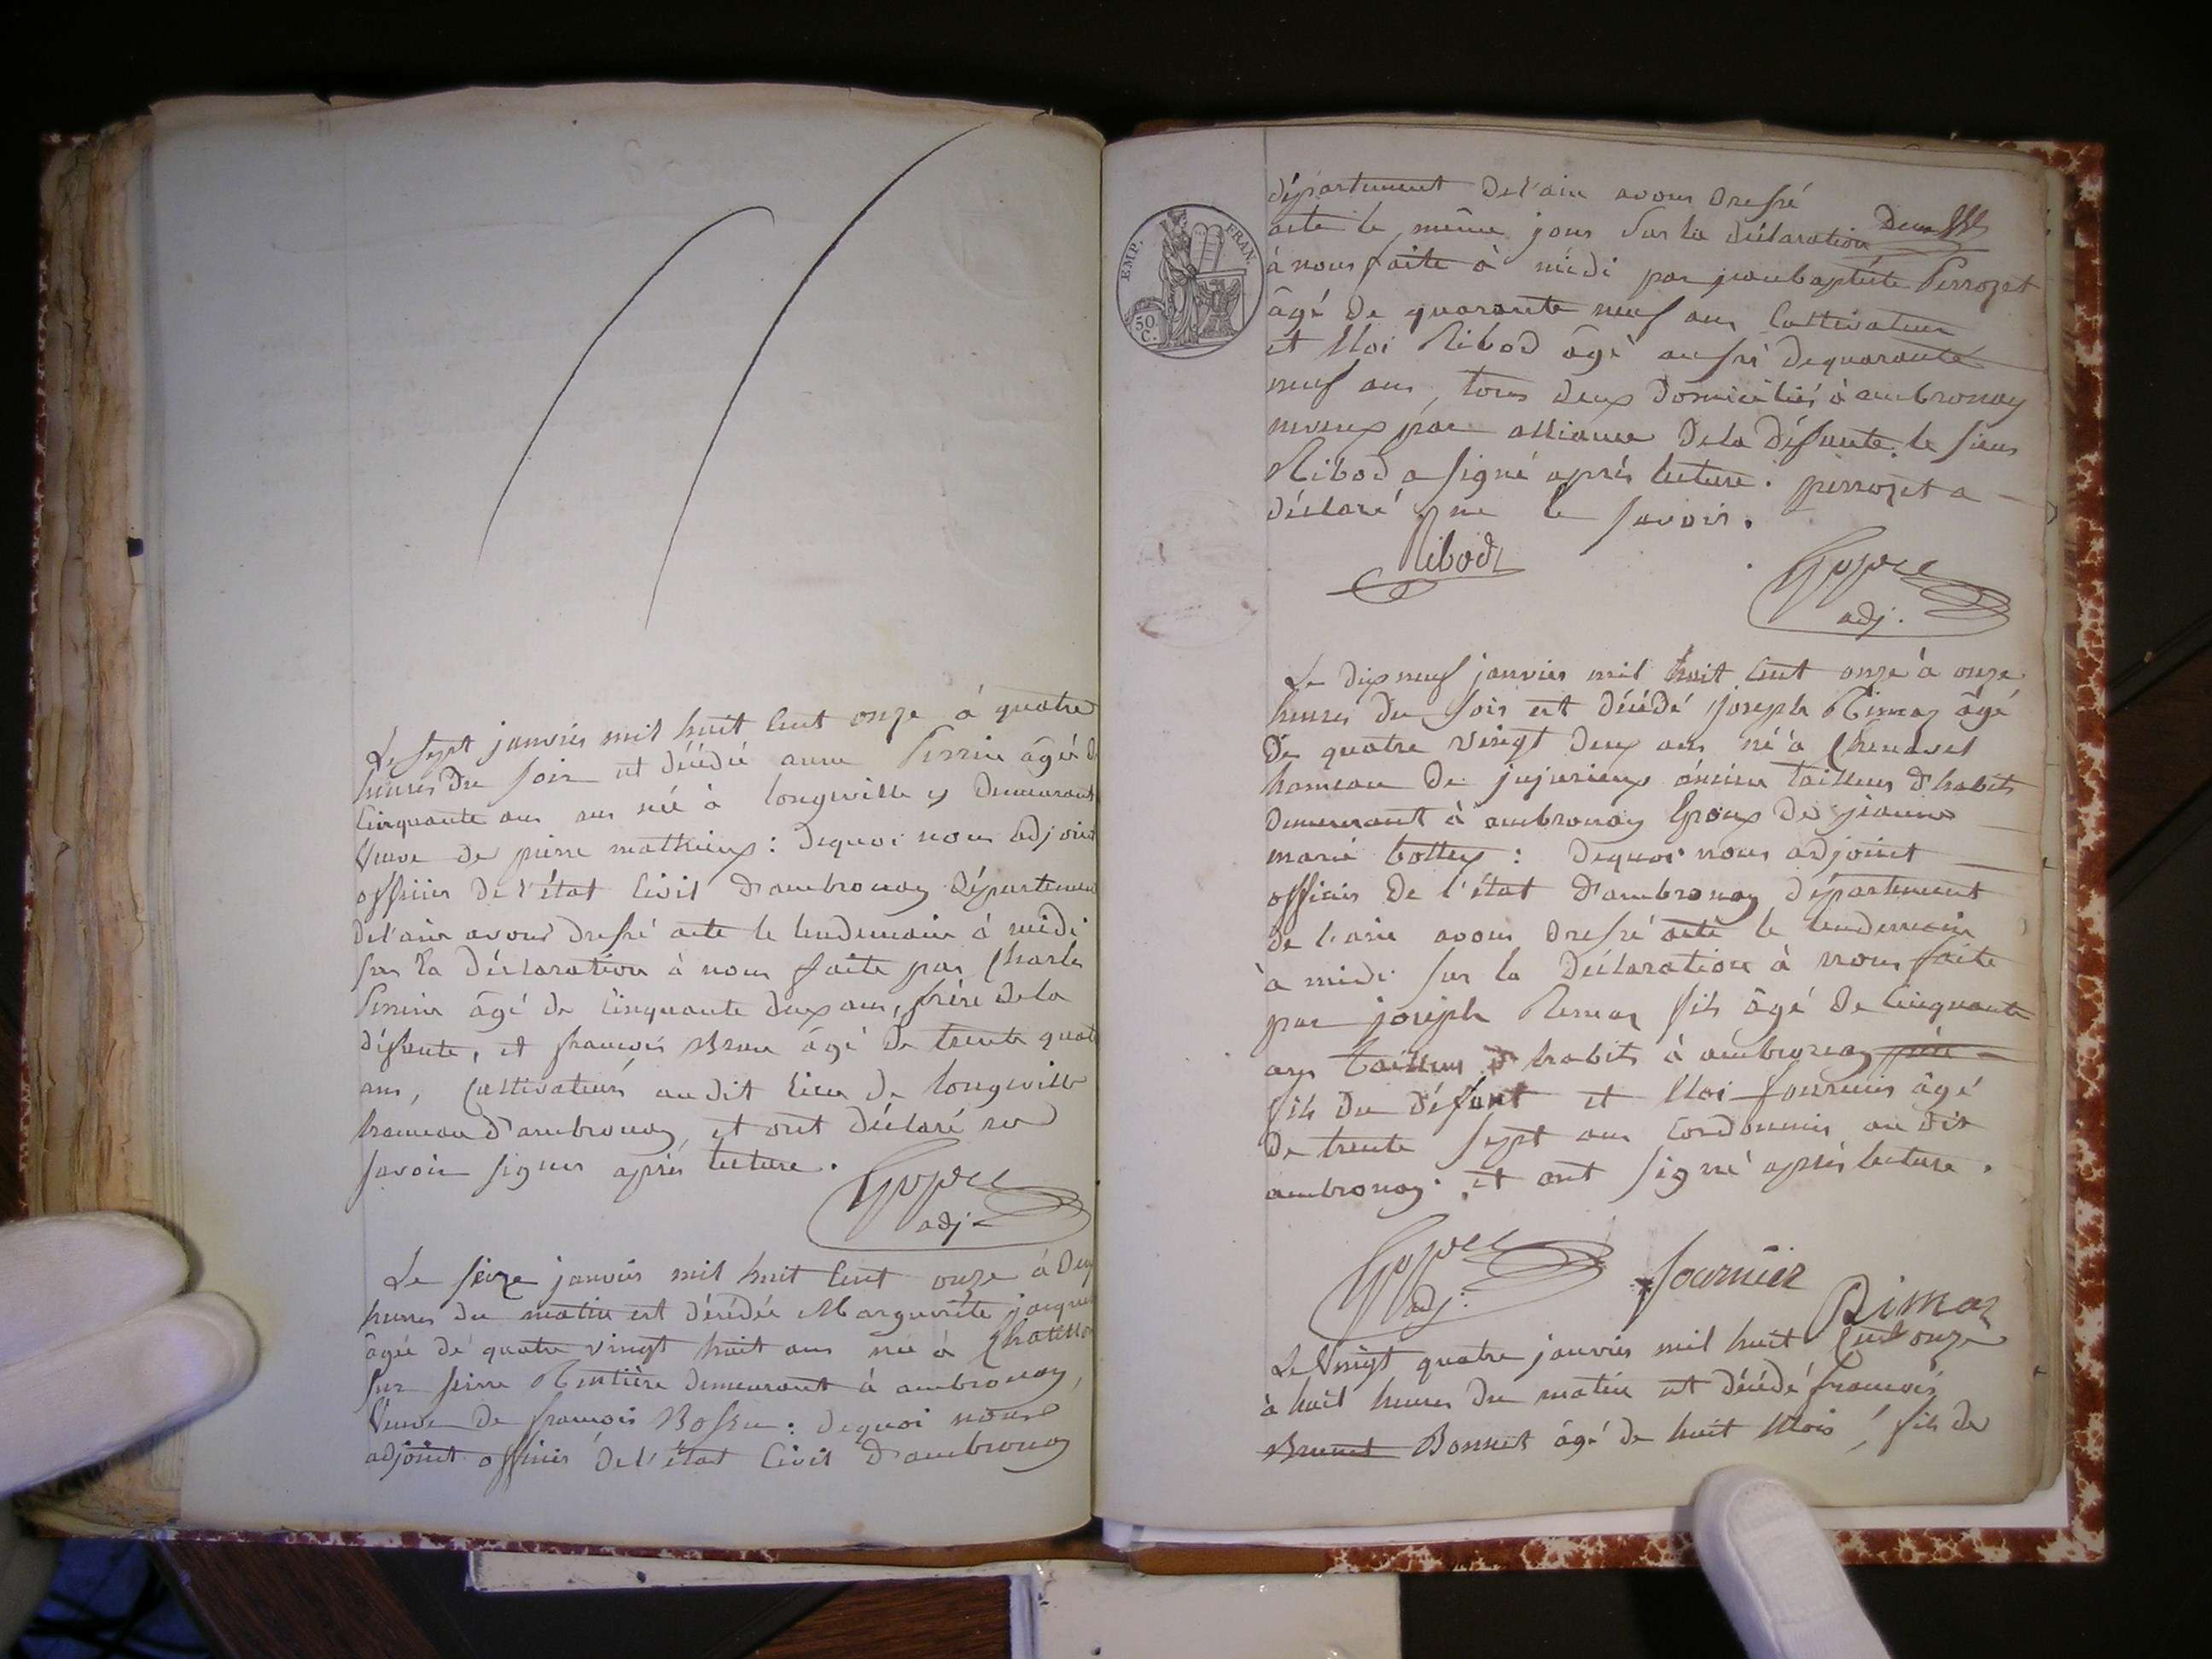 Le sept janvier mil huit cent onze à quatre
heures du soir est décédée anne Perrin âgée de
cinquante ans née à longeville y demeurant
Veuve de pierre mathieux : dequoi nous adjoint
officier de l'état civil d'ambronay département
del'ain avons dressé acte le lendemain à midi
sur la déclaration à nous faite par Charles
Perrin âgé de cinquante deux ans, frère dela
défunte, et françois Brun âgé de trente quatre
ans, Cultivateurs au dit lieu de longeville
hameau d'ambronay, et ont déclaré ne
savoir signer après lecture.
adj.
Le seize janvier mil huit cent onze à deux
heures du matin est décédée Marguerite jacquet
âgée de quatre vingt huit ans née à Chatillon
sur Rentière demeurant à ambronay,
Veuve de françois Bossu : dequoi nous
adjoint officier del'état civil d'ambronay
EMP. FRAN.
50 C.
département del'ain avons dressé
acte le même jour sur la déclaration
à nous faite à midi par jeanbaptiste Perrozet
âgé de quarante neuf ans Cultivateur
et Eloi Ribod âgé aussi dequarante
neuf ans, tous deux domiciliés à ambronay
neveux par alliance dela défunte. le sieur
Ribod a signé après lecture. perrozet a
déclaré ne le savoir.
Ribod
adj.
Le dix neuf janvier mil huit cent onze à onze
heures du soir est décédé joseph Rimaz âgé
de quatre vingt deux ans né à Chenavel
hameau de jujurieux ancien tailleur d'habits
demeurant à ambronay Epoux de jeanne
marie bottex : dequoi nous adjoint
officier de l'état d'ambronay département
de l'ain avons dressé acte le lendemain
à midi sur la déclaration à nous faite
par joseph Rimaz fils âgé de cinquante
ans tailleur d'habits à ambronay père
fils du défunt et Eloi fournier âgé
de trente sept ans Cordonnier au dit
ambronay. et ont signé après lecture.
adj.
fournier
Rimaz
Le Vingt quatre janvier mil huit cent onze
à huit heures du matin est décédé françois
Brunet Bonnet âgé de huit Mois, fils de